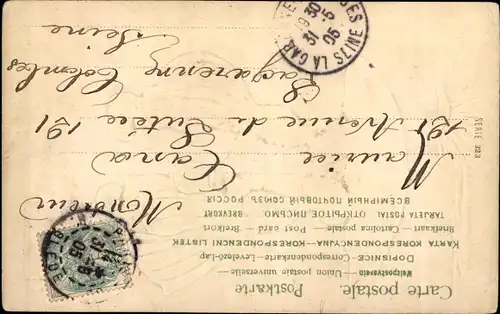 Carte postale. Postkarte
Weltpostverein — Union postale universelle
DOPISNICE — Correspondenzkarte — Levelező-Lap
KARTA KORESPONDENCYJNA — KORESPONDENČNÍ LISTEK
Briefkaart — Cartolina postale — Post card — Brefkort
TARJETA POSTAL — ОТКРЫТОЕ ПИСЬМО. — BREVKORT
ВСЕМІРНЫЙ ПОЧТОВЫЙ СОЮЗЪ. РОССІЯ
Monsieur
Maurice
191 Avenue de Lutèce 191
Lagarenne Colombes
Seine
SERIE 323
LA GAR
SEINE
30
5
05
31
05